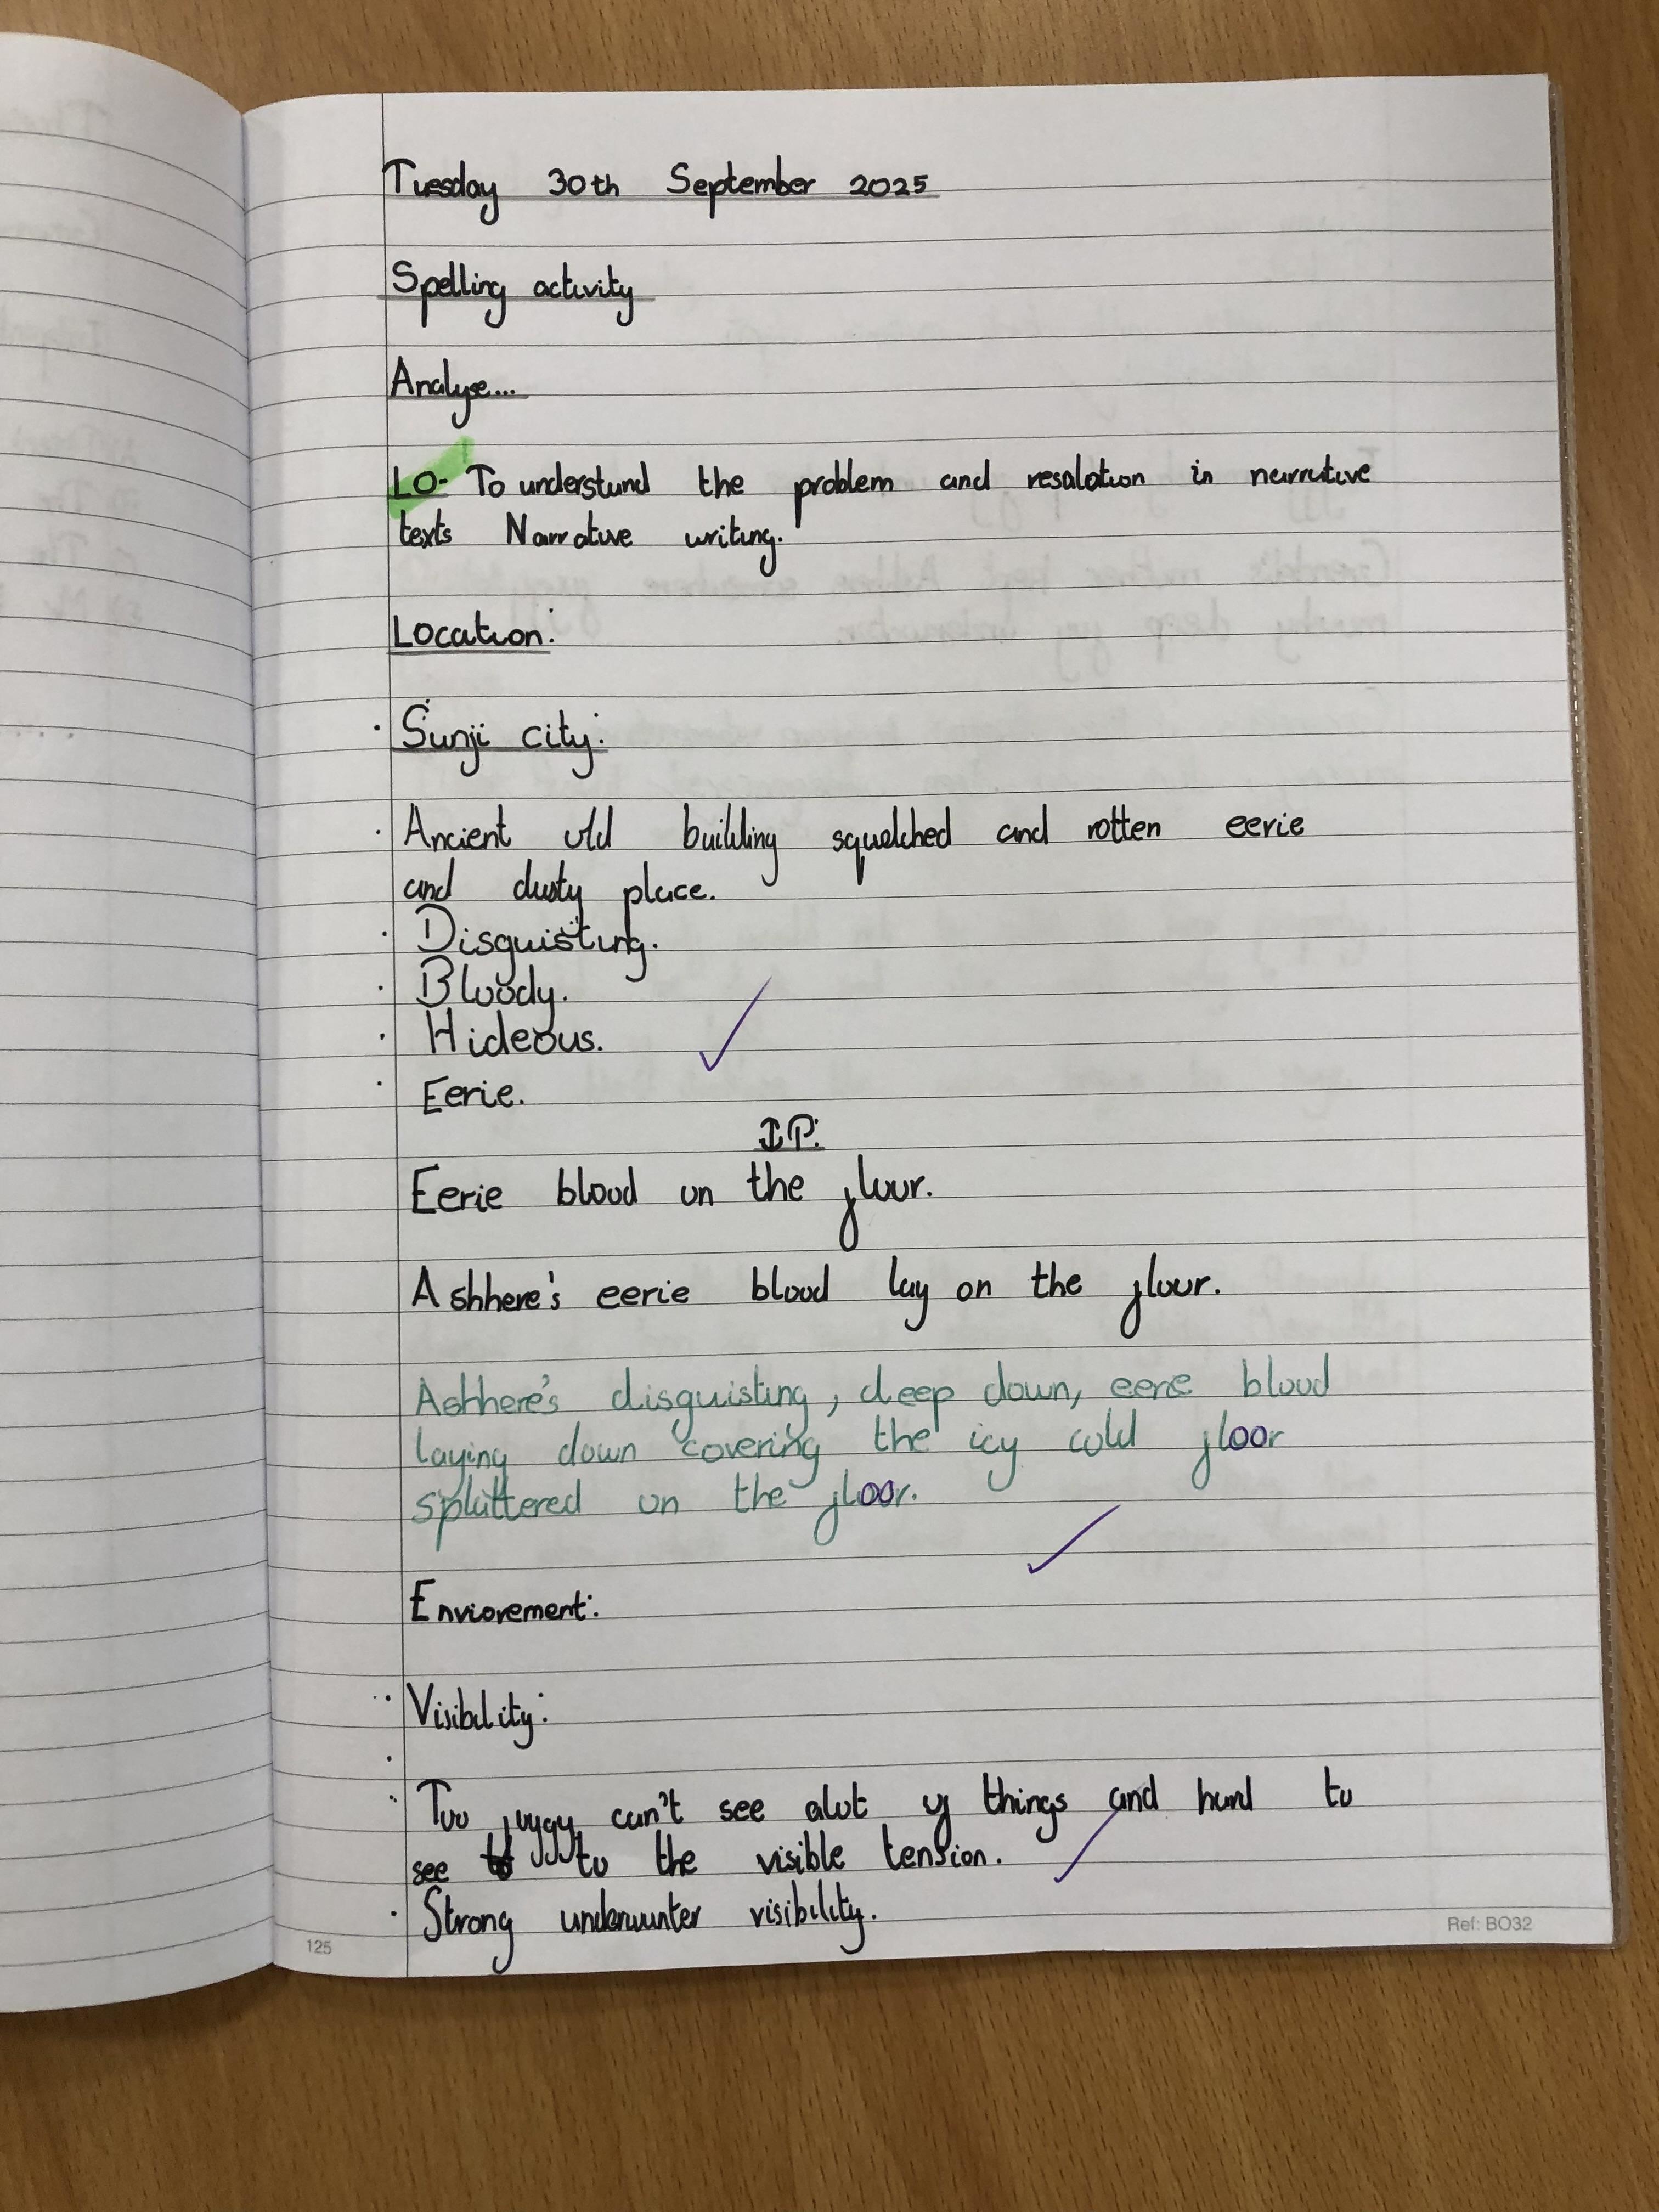 Tuesday 30th September 2025
Spelling activity
Analyse...
LO- To understand the problem and resalotion in narrative
texts Narrative writing.
Location:
· Sunji city:
· Ancient old building squelched and rotten eerie
and dusty place.
· Disguisting.
· Bloody.
· Hideous.
· Eerie.
I.P.:
Eerie blood on the floor.
Ashhere's eerie blood lay on the floor.
Ashhere's disguisting, deep down, eerie blood
laying down covering the icy cold floor
splattered on the floor.
Enviorement:
· Visibility:
· Too foggy can't see alot of things and hard to
see to the visible tension.
· Strong underwunter visibility.
125
Ref: BO32